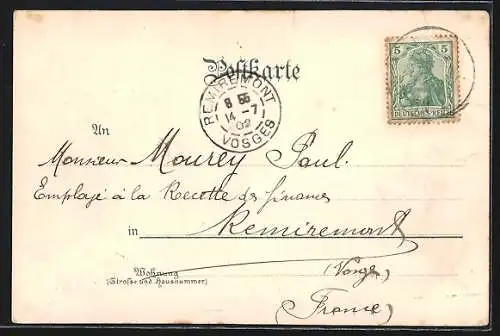 Postkarte
5
DEUTSCHES REICH
REMIREMONT
8 55
14 -7
02
VOSGES
An
Monsieur Mourey Paul.
Employé à la Recette des finances
in Remiremont
Wohnung
(Strasse und Hausnummer)
(Vosges)
France